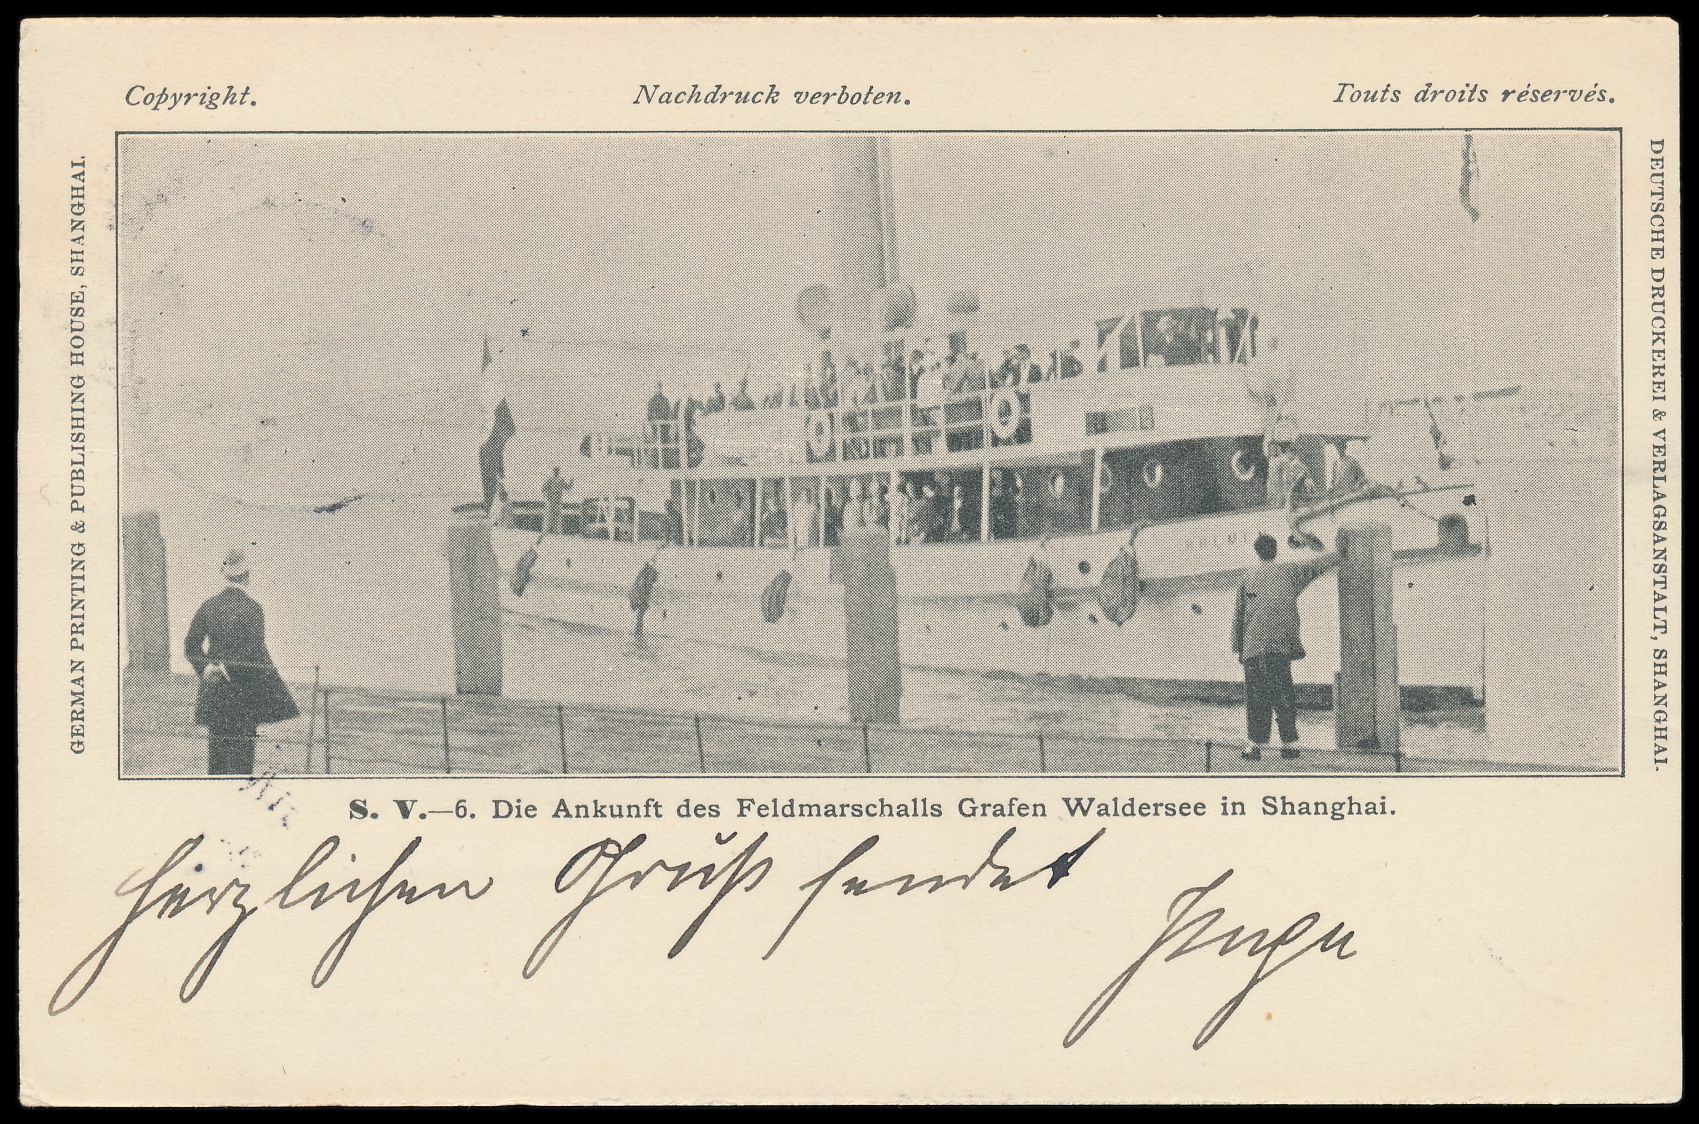 Copyright.
Nachdruck verboten.
Touts droits réservés.
GERMAN PRINTING & PUBLISHING HOUSE, SHANGHAI.
DEUTSCHE DRUCKEREI & VERLAGSANSTALT, SHANGHAI.
S. V.—6. Die Ankunft des Feldmarschalls Grafen Waldersee in Shanghai.
Herzlichen Gruß sendet